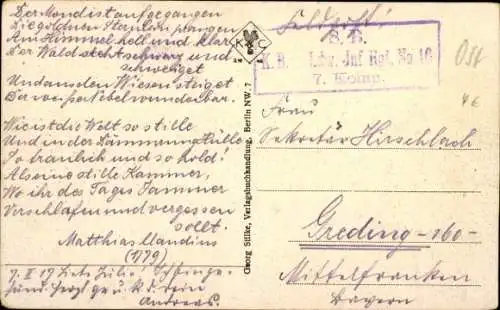 Der Mond ist aufgegangen
Die goldnen Sternlein prangen
Am Himmel hell und klar
Der Wald steht schwarz und
schweiget
Und aus den Wiesen steiget
Der weiße Nebel wunderbar.
Wie ist die Welt so stille
Und in der Dämmrung Hülle
So traulich und so hold!
Als eine stille Kammer,
Wo ihr des Tages Jammer
Verschlafen und vergessen
sollt.
Matthias Claudius
(1779)
Andreas.
K C
Georg Stilke, Verlagsbuchhandlung, Berlin NW. 7
Feldpost!
S. B.
K. B. Ldw. Inf Rgt. No 10
7. Komp.
Frau
Sekretär Hirschlach
Greding -160-
Mittelfranken
Bayern
4€